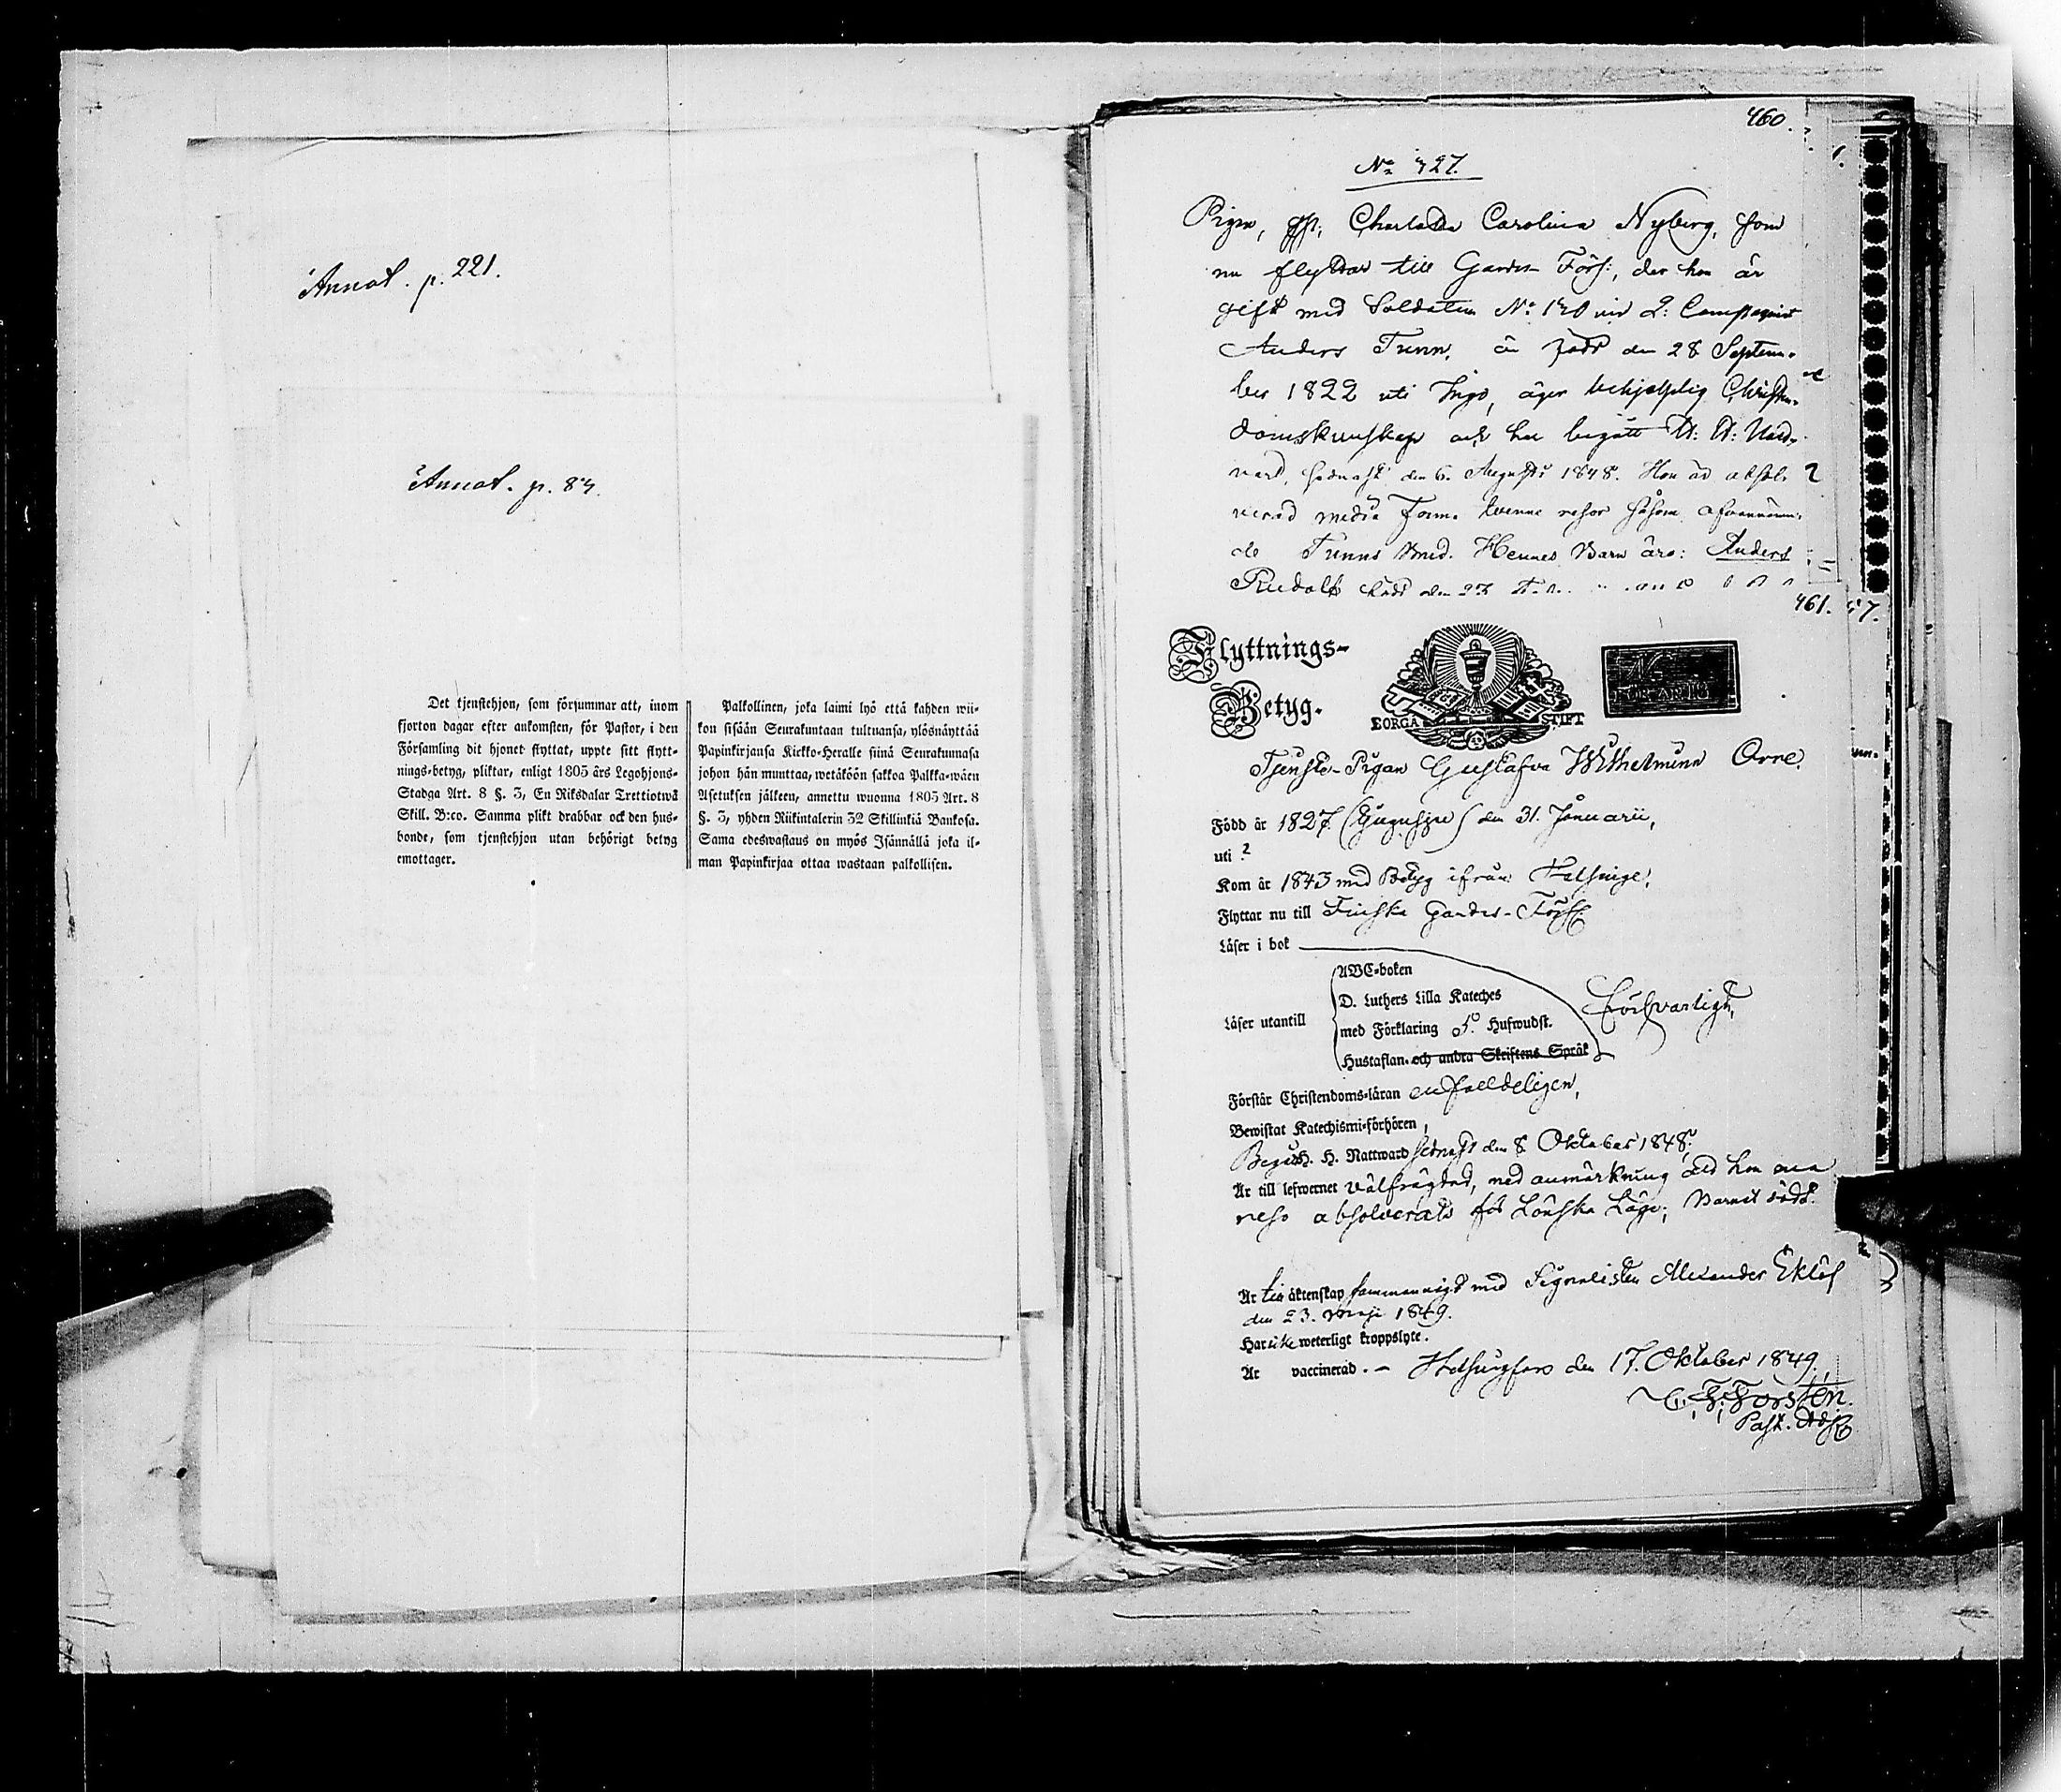 Annot. p. 221.
Annot. p. 84.
Det tjenstehjon, som försummar att, inom
fjorton dagar efter ankomsten, för Pastor, i den
Församling dit hjonet flyttat, uppte sitt flytt-
nings-betyg, pliktar, enligt 1805 års Legohjons-
Stadga Art. 8 §. 3, En Riksdalar Trettiotwå
Skill. B:co. Samma plikt drabbar ock den hus-
bonde, som tjenstehjon utan behörigt betyg
emottager.
Palkollinen, joka laimi lyö että kahden wii-
kon sisään Seurakuntaan tultuansa, ylösnäyttää
Papinkirjansa Kirkko-Heralle siinä Seurakunnasa
johon hän muuttaa, wetäköön sakkoa Palkka-wäen
Asetuksen jälkeen, annettu wuonna 1805 Art. 8
§. 3, yhden Riikintalerin 32 Skillinkiä Bankosa.
Sama edeswastaus on myös Isännällä joka il-
man Papinkirjaa ottaa wastaan palkollisen.
460.
No 427.
Pigan, Charlotta Carolina Nyberg, som
nu flyttar till Gardes Förs:, der hon är
gift med Soldaten No 120 vid 2: Compagniet
Anders Trenn, är född den 28 Septem-
ber 1822 uti Ingo, äger behjelplig Christen-
domskunskap och har begått H: H: Natt-
vard sednast den 6. Augusti 1848. Hon är absol-
verad media form. tvenne resor såsom ofvannämn-
de Trenns Hennes Barn äro: Anders
Rudolf född den 23
461.
Flyttnings-
Betyg.
BORGÅ STIFT
Tjenste-Pigan Gustafva Wilhelmina Orre.
Född år 1827. den 31. Januarii,
uti ?
Kom år 1843 med Betyg ifrån Helsinge,
Flyttar nu till Finska Gardes-Förs.
Läser i bok
Läser utantill
ABC-boken
D. Luthers Lilla Kateches
med Förklaring o. 5. Hufwudst.
Hustaflan. och andra Skriftens Språk
Försvarligt,
Förstår Christendoms-läran enfaldeligen,
Bewistat Katechismi-förhören,
Begått H. H. Nattward sednast den 8 Oktober 1848.
Är till lefwernet välfrägdad, med anmärkning att hon ena
reso absolverats för Lönska Läge; Barnet dödt.
Är till äktenskap sammanvigd med Signalisten Alexander Eklöf
den 23. Maji 1849.
Har icke weterligt kroppslyte.
Är vaccinerad. - Helsingfors den 17. Oktober 1849.
C. F. Forstén.
Past. Adj.